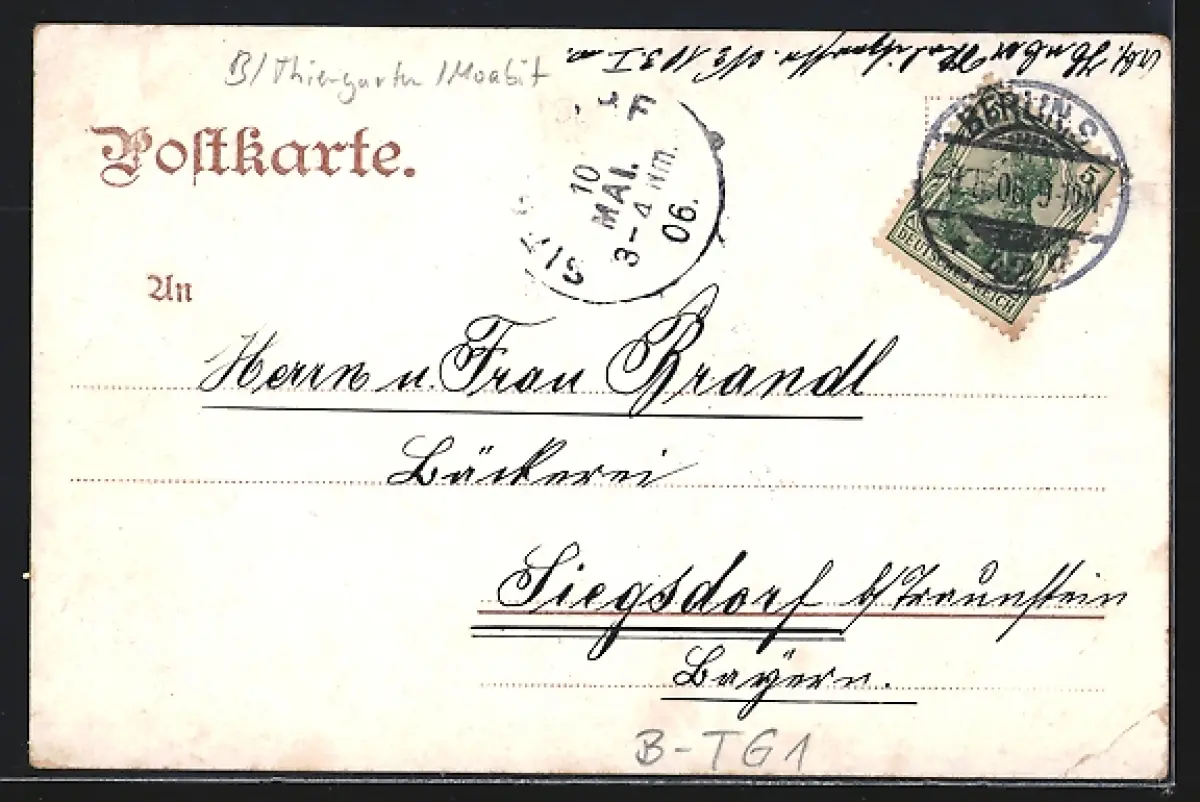 B/Thiergarten/Moabit
Postkarte.
10
MAI.
3-4 NM.
06.
BERLIN. S.
5
06 9-10
DEUTSCHES REICH
An
Herrn u. Frau Brandl
Bäckerei
Siegsdorf b/Traunstein
Bayern.
B-TG1